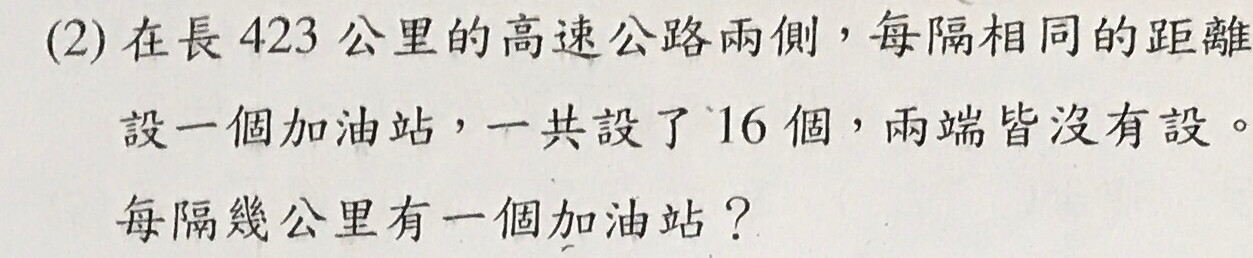 (2) 在長 423 公里的高速公路兩側，每隔相同的距離
設一個加油站，一共設了 16 個，兩端皆沒有設。
每隔幾公里有一個加油站？